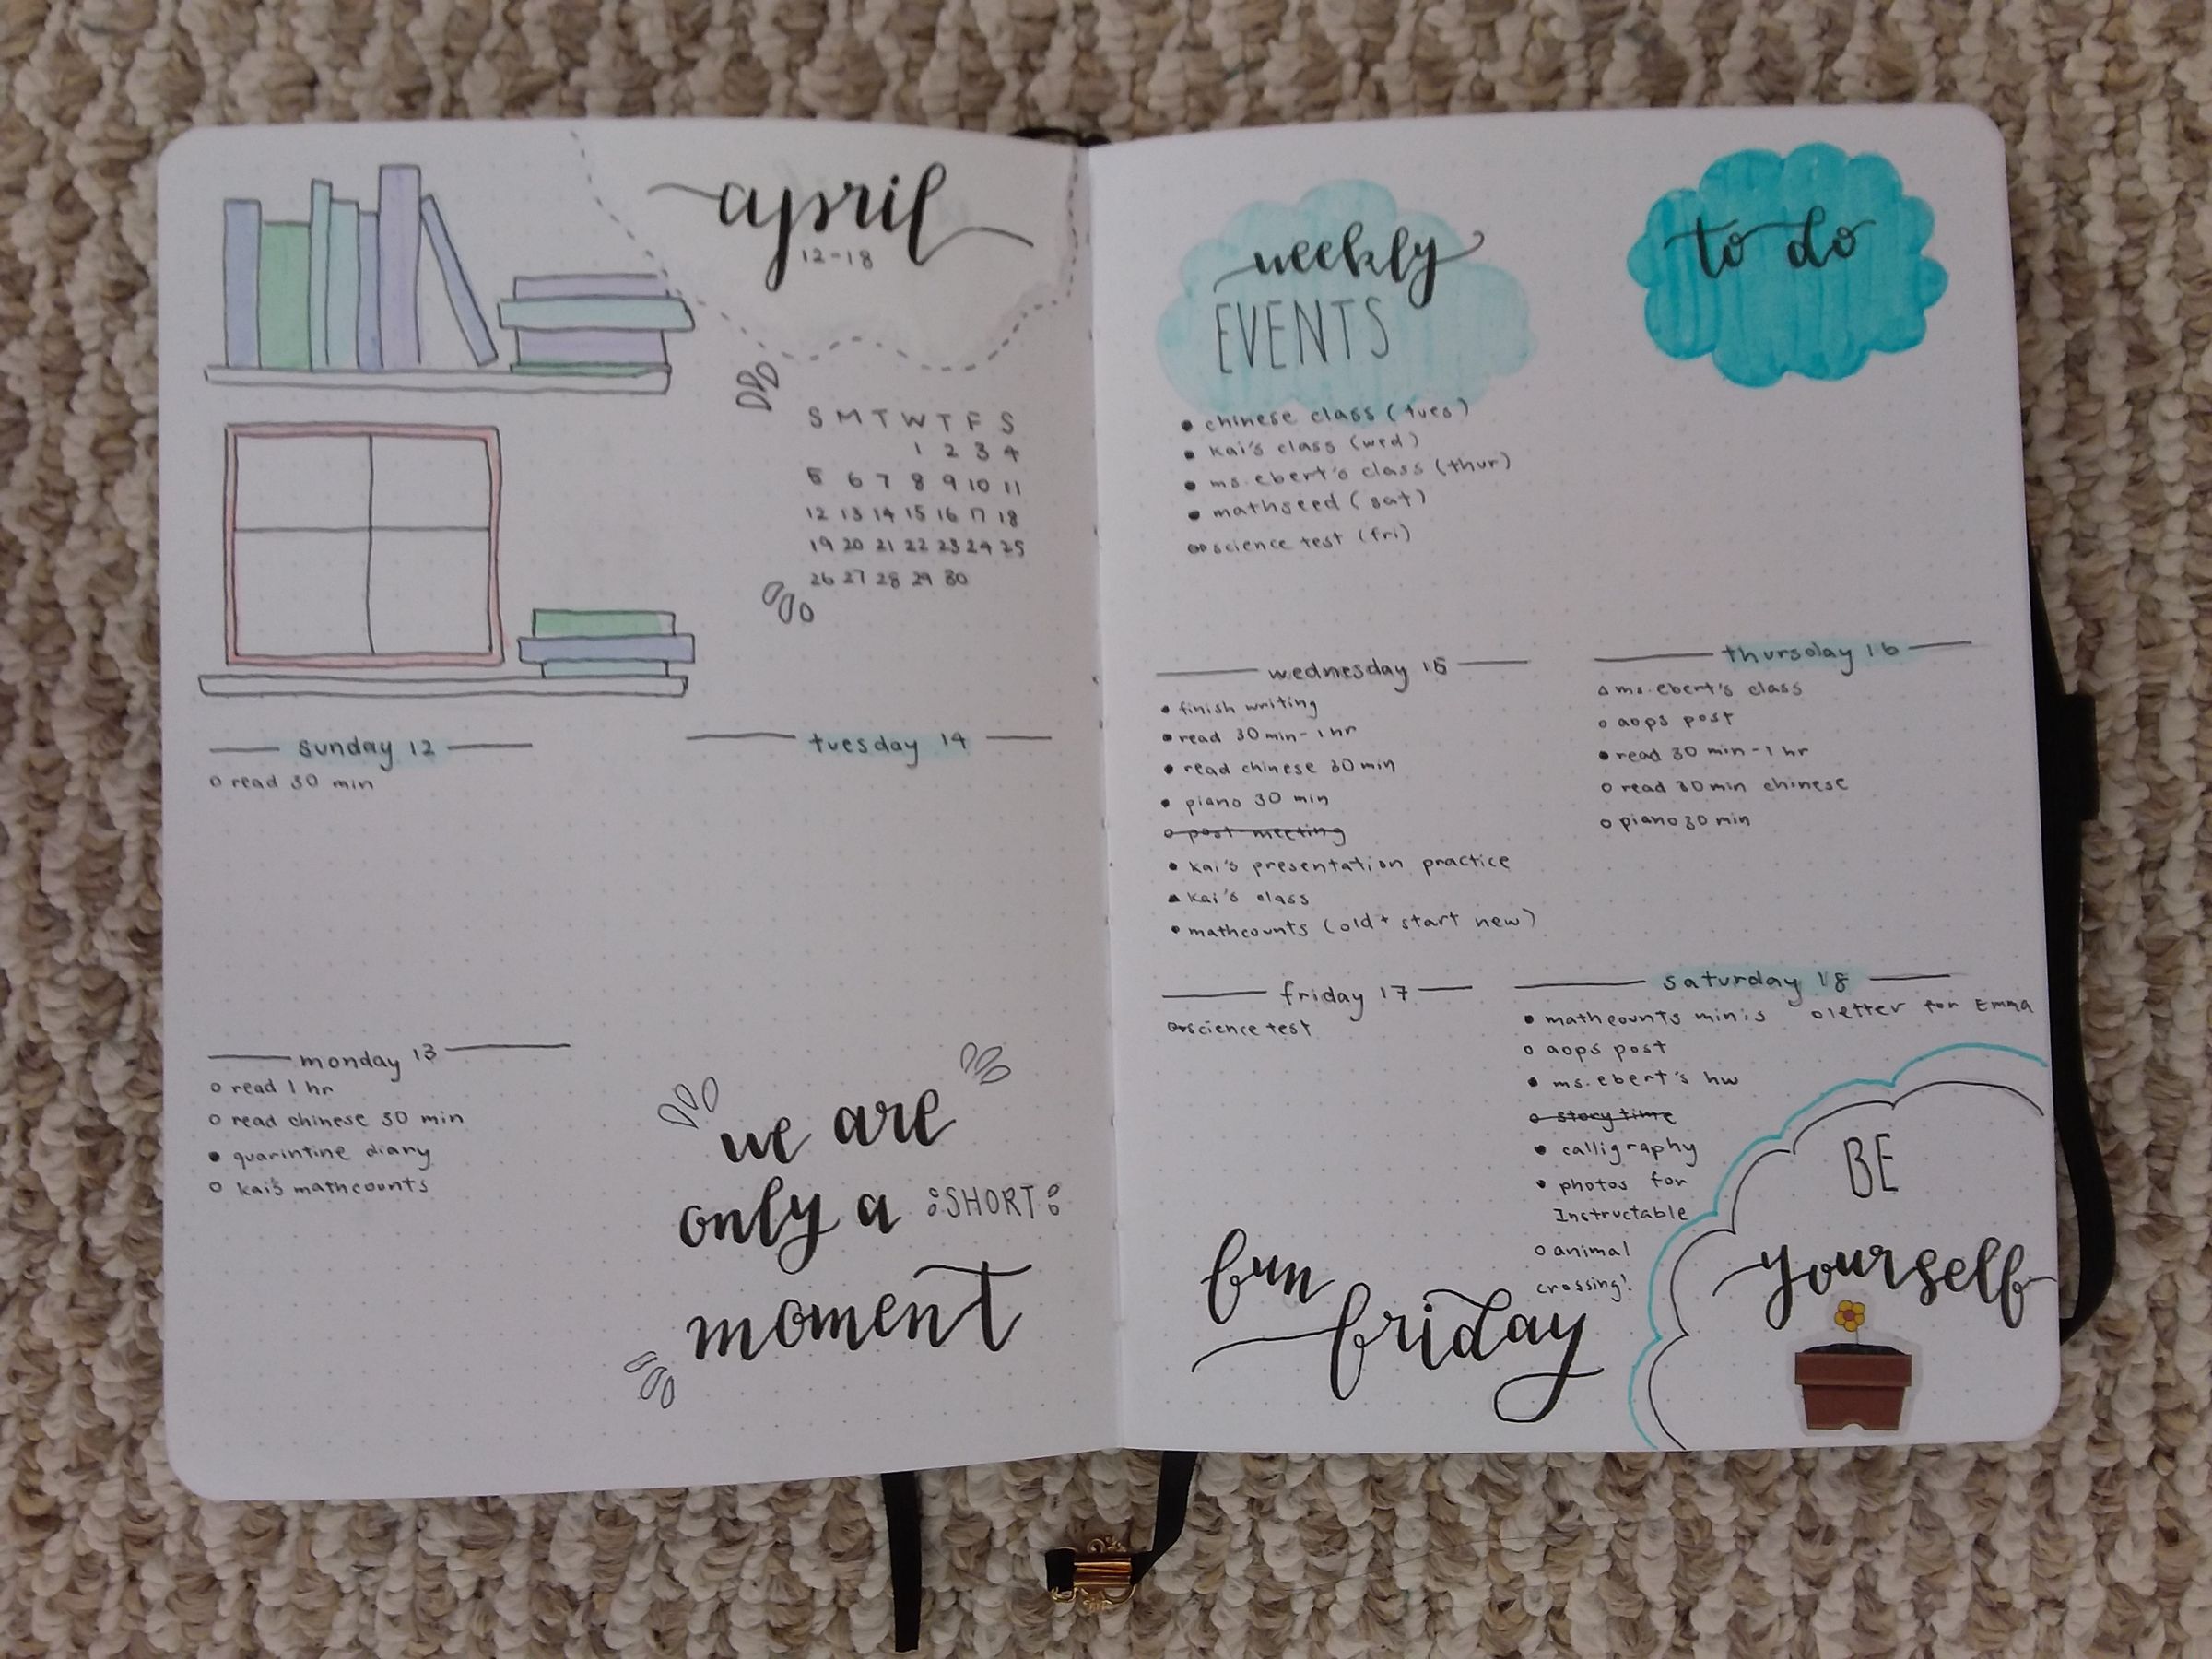 april
12-18
S M T W T F S
1 2 3 4
5 6 7 8 9 10 11
12 13 14 15 16 17 18
19 20 21 22 23 24 25
26 27 28 29 30
sunday 12
read 30 min
monday 13
read 1 hr
read chinese 30 min
quarintine diary
kai's mathcounts
tuesday 14
we are
only a SHORT
moment
weekly
EVENTS
chinese class (tues)
kai's class (wed)
ms. ebert's class (thur)
mathseed (sat)
science test (fri)
to do
wednesday 15
finish writing
read 30 min - 1 hr
read chinese 30 min
piano 30 min
post meeting
kai's presentation practice
kai's class
mathcounts (old + start new)
thursday 16
ms. ebert's class
aops post
read 30 min - 1 hr
read 30 min chinese
piano 30 min
friday 17
science test
fun
friday
saturday 18
mathcounts minis
letter for Emma
aops post
ms. ebert's hw
story time
calligraphy
photos for
Instructable
animal
crossing!
BE
yourself